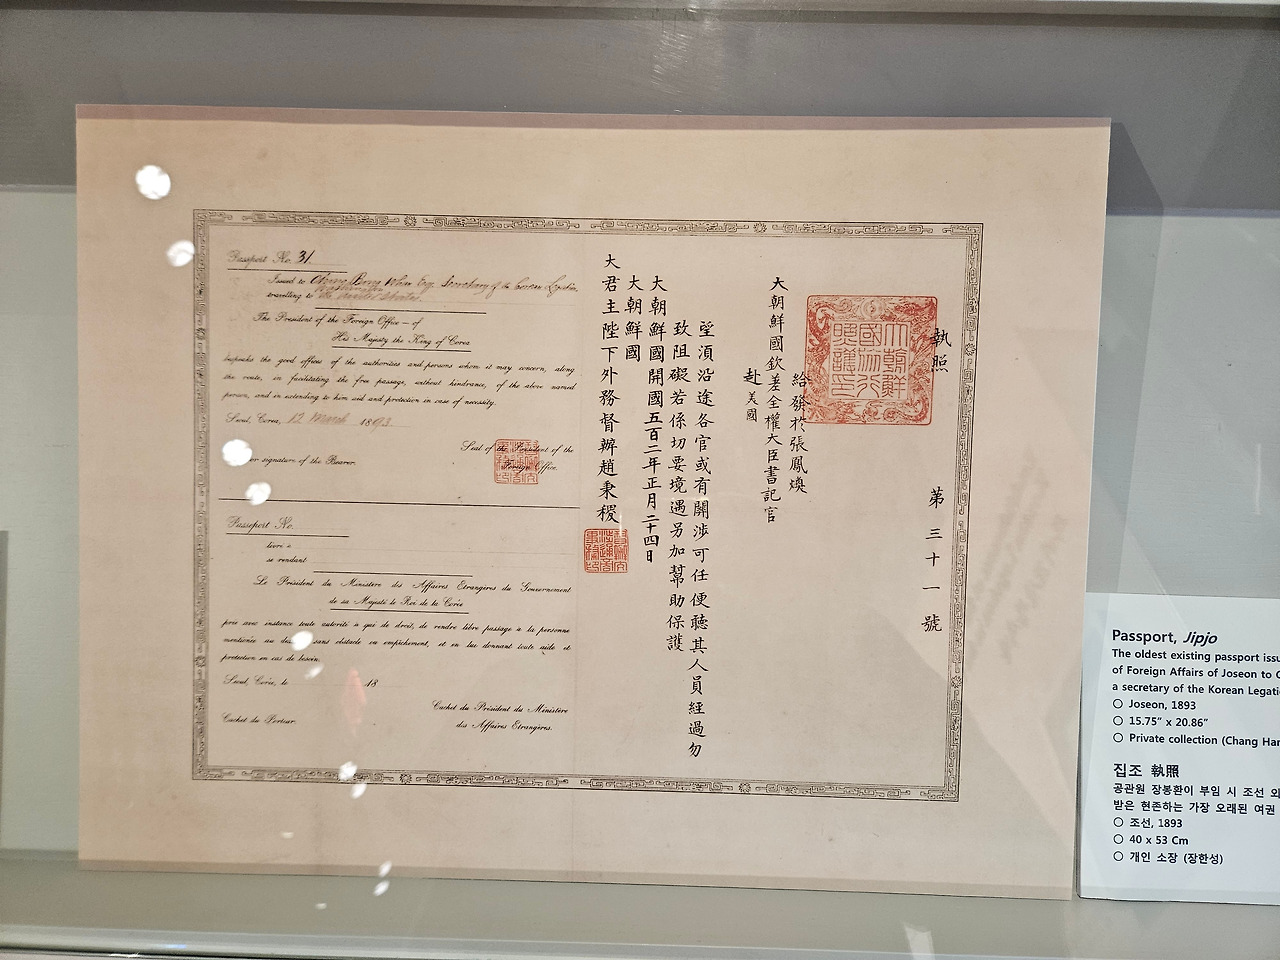 Passport No. 31.
Issued to Chang Bong Whan Esq. Secretary of the Corean Legation,
travelling to the United States.
The President of the Foreign Office — of
His Majesty the King of Corea
bespeaks the good offices of the authorities and persons whom it may concern, along
the route, in facilitating the free passage, without hindrance, of the above named
person, and in extending to him aid and protection in case of necessity.
Seoul, Corea, 12 March 1893.
Seal of the President of the
Foreign Office.
or signature of the Bearer.
Passeport No.
livré à
se rendant
Le Président du Ministère des Affaires Etrangères du Gouvernement
de sa Majesté le Roi de la Corée
prie avec instance toute autorité à qui de droit, de rendre libre passage à la personne
mentionée au sans obstacle ou empêchement, et en lui donnant toute aide et
protection en cas de besoin.
Seoul, Corée, le 18
Cachet du Président du Ministère
des Affaires Etrangères.
Cachet du Porteur.
執照
第三十一號
給發於張鳳煥
大朝鮮國欽差全權大臣書記官
赴美國
望須沿途各官或有關涉可任便聽其人員經過勿
致阻礙若係切要境遇另加幫助保護
大朝鮮國開國五百二年正月二十四日
大朝鮮國
大君主陛下外務督辦趙秉稷
Passport, Jipjo
The oldest existing passport issu
of Foreign Affairs of Joseon to
a secretary of the Korean Legati
○ Joseon, 1893
○ 15.75" x 20.86"
○ Private collection (Chang Han
집조 執照
공관원 장봉환이 부임 시 조선 외
받은 현존하는 가장 오래된 여권
○ 조선, 1893
○ 40 x 53 Cm
○ 개인 소장 (장한성)